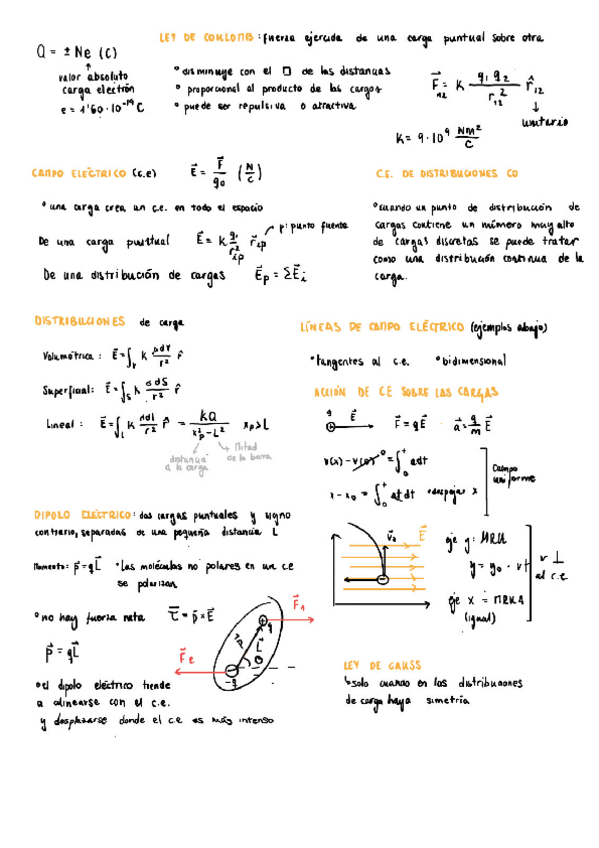 LEY DE COULOMB: fuerza ejercida de una carga puntual sobre otra
Q = ± Ne (C)
valor absoluto
carga electrón
e = 1'60 · 10⁻¹⁹ C
° disminuye con el □ de las distancias
° proporcional al producto de las cargas
° puede ser repulsiva o atractiva
F⃗₁₂ = K q₁ q₂ / r₁₂² r̂₁₂
unitario
K = 9·10⁹ Nm²/C
CAMPO ELÉCTRICO (c.e) E⃗ = F⃗/q₀ (N/C)
° una carga crea un c.e. en todo el espacio
p: punto fuente
De una carga puntual E⃗ = K qᵢ/r²ᵢₚ r⃗ᵢₚ
De una distribución de cargas E⃗ₚ = ΣE⃗ᵢ
C.E. DE DISTRIBUCIONES CO
° cuando un punto de distribución de
cargas contiene un número muy alto
de cargas discretas se puede tratar
como una distribución continua de la
carga.
DISTRIBUCIONES de carga
Volumétrica: E⃗ = ∫ᵥ K
Superficial: E⃗ = ∫ₛ K
Lineal: E⃗ = ∫_L K λdl/r² r̂ = KQ/(x²ₚ-L²) xₚ>L
distancia
a la carga
Mitad
de la barra
LÍNEAS DE CAMPO ELÉCTRICO (ejemplos abajo)
° tangentes al c.e. ° bidimensional
ACCIÓN DE CE SOBRE LAS CARGAS
q E⃗ F⃗ = qE⃗ a⃗ = q/m E⃗
v(x) - v(0) = ∫₀ᵗ adt
x - x₀ = ∫₀ᵗ despejar x
Campo
uniforme
DIPOLO ELÉCTRICO: dos cargas puntuales y signo
contrario, separadas de una pequeña distancia L
Momento: p⃗ = qL⃗ ° las moléculas no polares en un c.e
se polarizan
° no hay fuerza neta τ⃗ = p⃗ × E⃗
p⃗ = qL⃗
F⃗₁
q
p⃗
L⃗
Θ
-q
F⃗₂
° el dipolo eléctrico tiende
a alinearse con el c.e.
y desplazarse donde el c.e es más intenso
E⃗
eje y: MRU
y = y₀ · vt
eje x = MRUA
(igual)
v ⊥
al c.e.
LEY DE GAUSS
↳ solo cuando en las distribuciones
de carga haya simetría